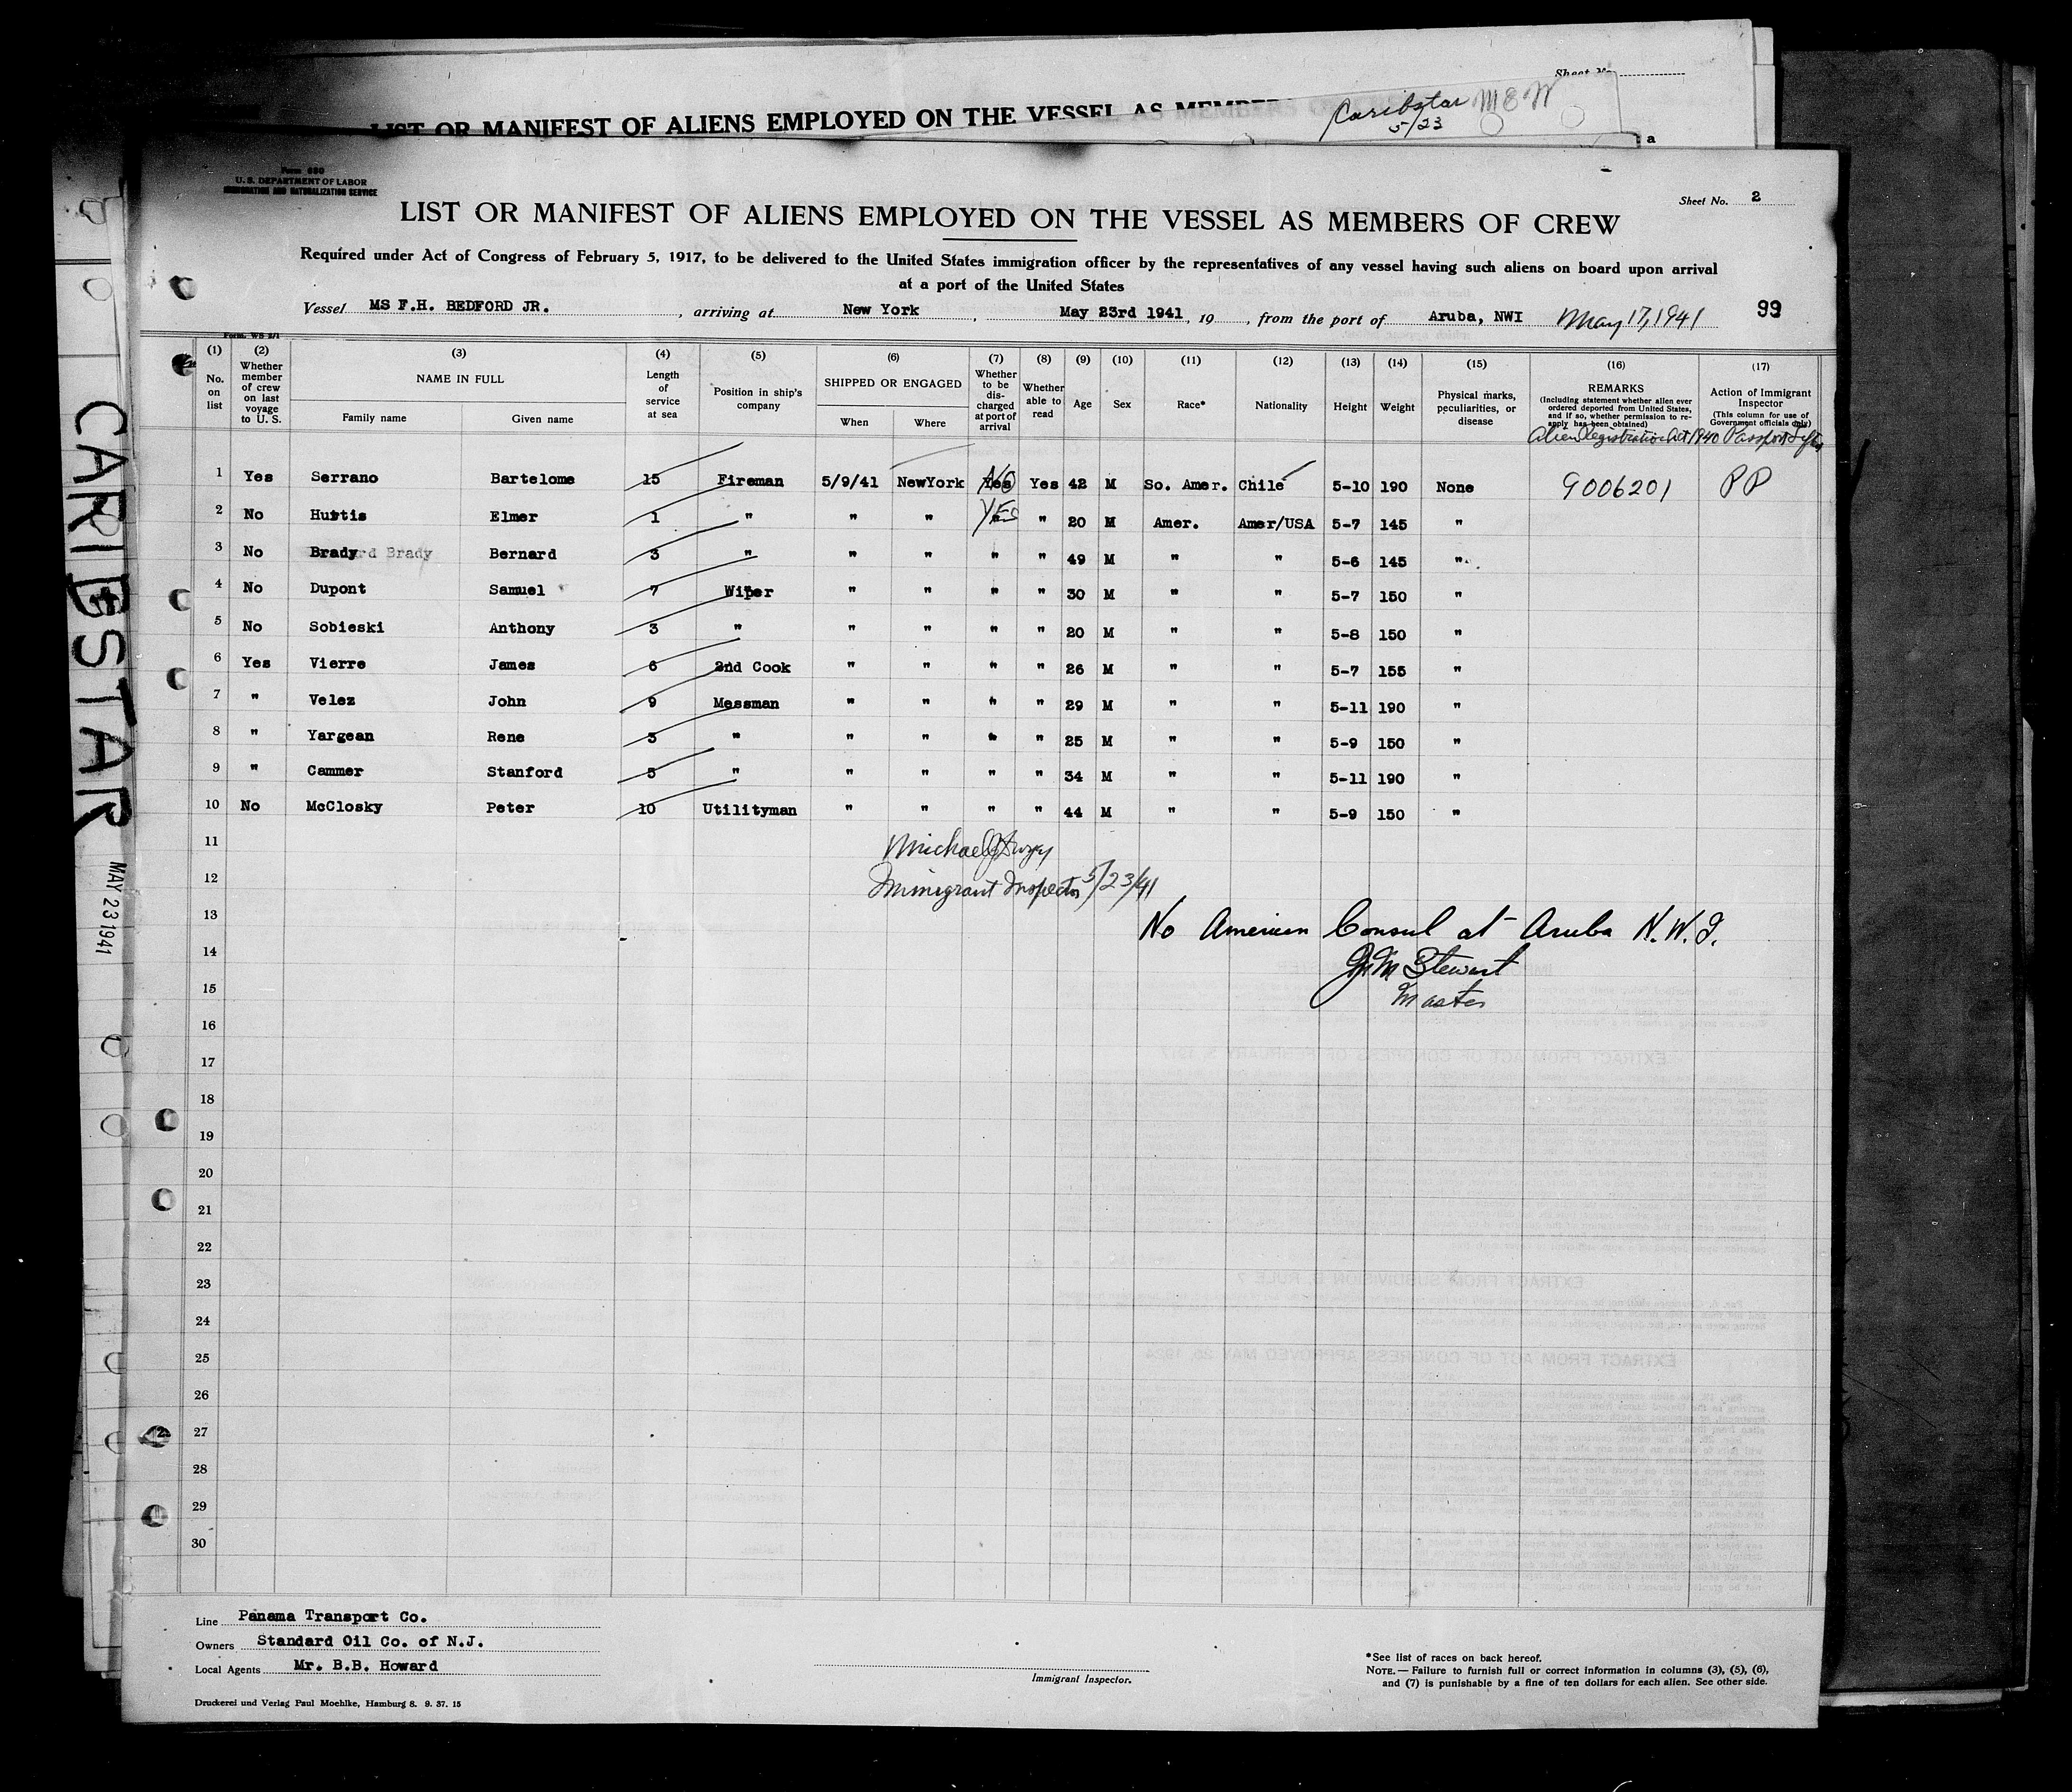 Sheet No.
LIST OR MANIFEST OF ALIENS EMPLOYED ON THE VESSEL AS MEMBERS
Caribstar MEW
5/23
a
CARIBSTAR
MAY 23 1941
Form 680
U. S. DEPARTMENT OF LABOR
IMMIGRATION AND NATURALIZATION SERVICE
Sheet No. 2
LIST OR MANIFEST OF ALIENS EMPLOYED ON THE VESSEL AS MEMBERS OF CREW
Required under Act of Congress of February 5, 1917, to be delivered to the United States immigration officer by the representatives of any vessel having such aliens on board upon arrival
at a port of the United States
Vessel MS F.H. BEDFORD JR. , arriving at New York , May 23rd 1941 , 19 , from the port of Aruba, NWI May 17, 1941 99
(1) (2) (3) (4) (5) (6) (7) (8) (9) (10) (11) (12) (13) (14) (15) (16) (17)
No. on list
Whether member of crew on last voyage to U. S.
NAME IN FULL
Family name Given name
Length of service at sea
Position in ship's company
SHIPPED OR ENGAGED
When Where
Whether to be discharged at port of arrival
Whether able to read
Age
Sex
Race*
Nationality
Height
Weight
Physical marks, peculiarities, or disease
REMARKS
(Including statement whether alien ever ordered deported from United States, and if so, whether permission to re-apply has been obtained)
Action of Immigrant Inspector
(This column for use of Government officials only)
Alien Registration Act 1940 Passport
1 Yes Serrano Bartelome 15 Fireman 5/9/41 NewYork Yes NO Yes 42 M So. Amer. Chile 5-10 190 None 9006201 PP
2 No Hurtis Elmer 1 " " " YES " 20 M Amer. Amer/USA 5-7 145 "
3 No Brady Bernard 3 " " " " " 49 M " " 5-6 145 "
4 No Dupont Samuel 7 Wiper " " " " 30 M " " 5-7 150 "
5 No Sobieski Anthony 3 " " " " " 20 M " " 5-8 150 "
6 Yes Vierre James 6 2nd Cook " " " " 26 M " " 5-7 155 "
7 " Velez John 9 Messman " " " " 29 M " " 5-11 190 "
8 " Yargean Rene 3 " " " " " 25 M " " 5-9 150 "
9 " Cammer Stanford 5 " " " " " 34 M " " 5-11 190 "
10 No McClosky Peter 10 Utilityman " " " " 44 M " " 5-9 150 "
11 Michael
12 Immigrant Inspector 5/23/41
13 No American Consul at Aruba N.W.I.
14 Stewart
15 Master
16
17
18
19
20
21
22
23
24
25
26
27
28
29
30
Line Panama Transport Co.
Owners Standard Oil Co. of N.J.
Local Agents Mr. B.B. Howard
Immigrant Inspector.
*See list of races on back hereof.
NOTE.— Failure to furnish full or correct information in columns (3), (5), (6),
and (7) is punishable by a fine of ten dollars for each alien. See other side.
Druckerei und Verlag Paul Moehlke, Hamburg 8. 9. 37. 15